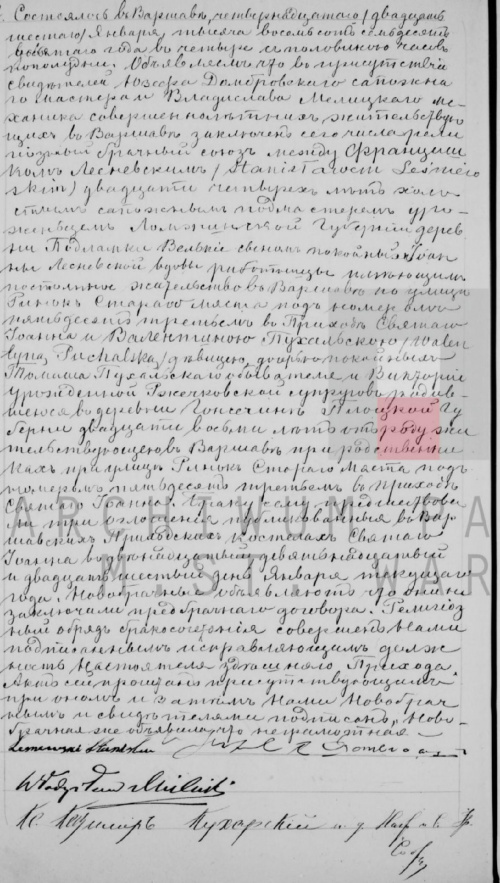 Состоялось в Варшаве, четырнадцатаго /двадцать
шестаго/ Января тысяча восемьсот семьдесят
девятаго года в четыре с половиною часа
пополудни. Объявляем что в присутствии
свидетелей Юзефа Домбровскаго сапожна
го мастера и Владислава Мелицкаго ме-
ханика совершеннолетних жительствую
щих в Варшаве заключен сего числа рели
гиозный брачный союз между Францишком
Лесневским /Stanisławem Leśniew
skim/ двадцати четырех лет холо
стым сапожным подмастерем уро-
женцем Ломжинской Губернии дерев
ни Подлатки Вельке сыном покойной Іоан
ны Лесневской вдовы работницы имеющим
постоянное жительство в Варшаве по улице
Рынок Стараго Места под номером
пятьдесят третьем в Приходе Святаго
Іоанна и Валентиною Пухальскою /Walen
tyną Puchalską/ девицею, дочерью покойнаго
Томаша Пухальскаго обывателя и Викторіи
урожденной Ржечковской супругов родив-
шеюся в деревни Гонсечин Плоцкой Гу
берни двадцати восьми лет от роду жи
тельствующею в Варшаве при родственни
ках при улице Рынок Стараго Места под
номером пятьдесят третьем в приходе
Святаго Іоанна. Браку сему предшествова
ли три оглашения публикованныя в Вар
шавских Приходских костелах Святаго
Іоанна в двенадцатый девятнадцатый
и двадцать шестый день Января текущаго
года. Новобрачные объявляют что они не
заключали предбрачнаго договора. Религіоз
ный обряд бракосочетания совершен Нами
подписанным исправляющим долж
ность Настоятеля здешняго Прихода.
Акт сей прочитан присутствующим
при оном и затем Нами Новобрач
ным и свидетелями подписан, Ново-
брачная же объявила что неграмотная
Władysław Milicki
Кс. Казимир Кухарский и. д. Наст.
ARCHIWUM PA
M.ST. WAR